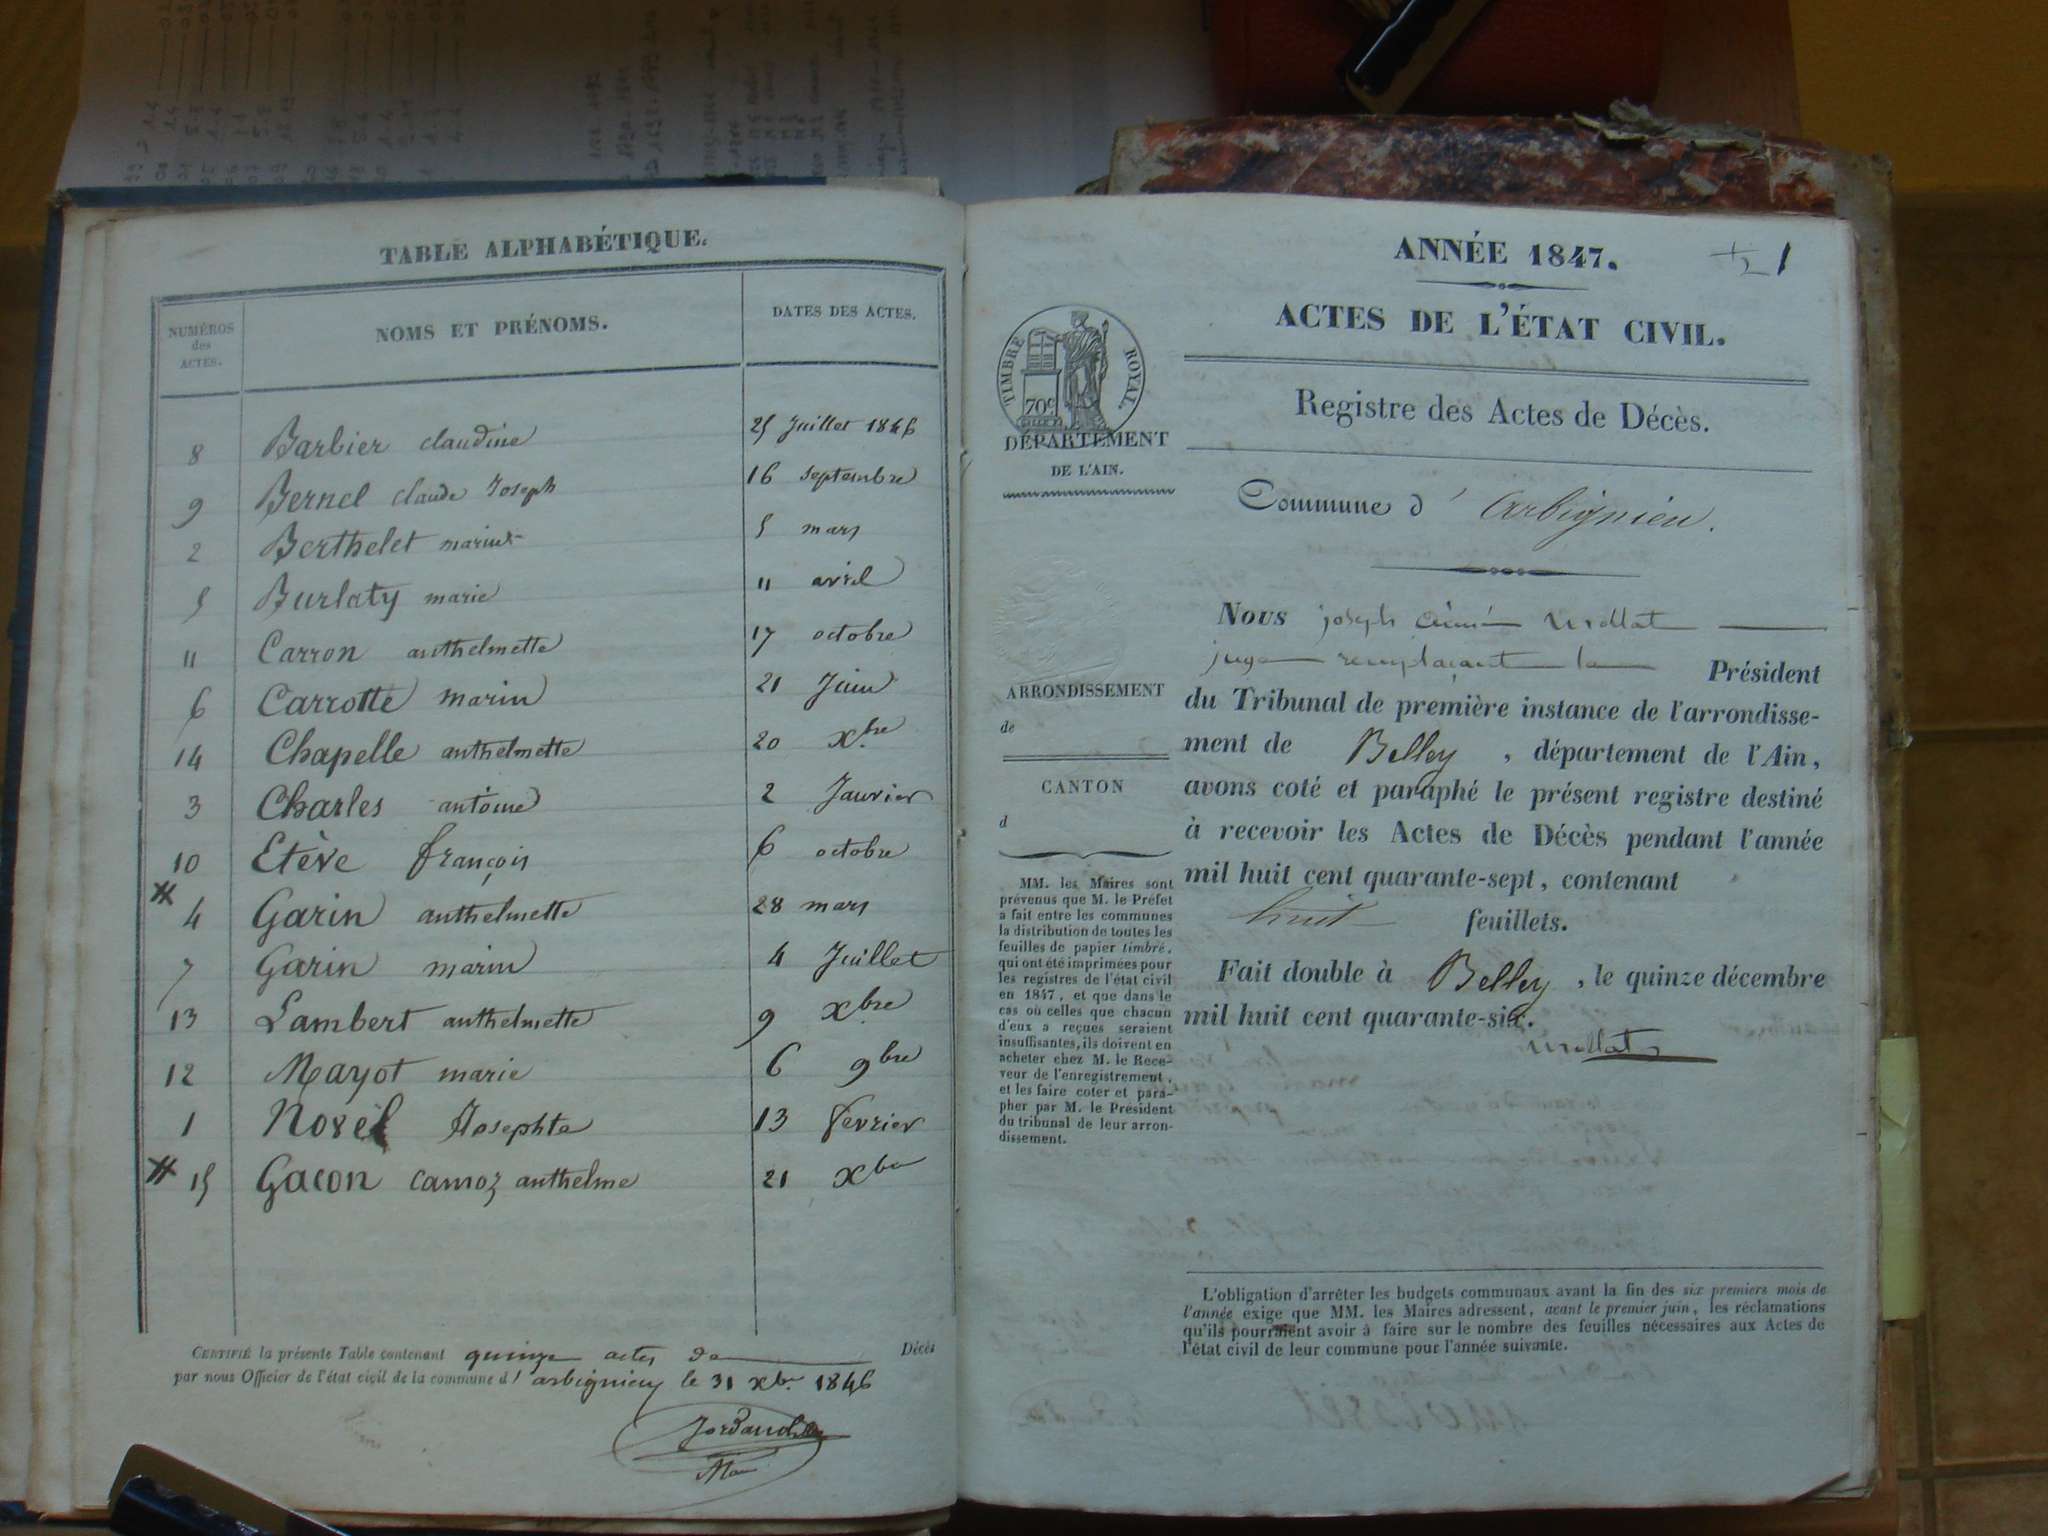 TABLE ALPHABÉTIQUE.
NUMÉROS des ACTES.
NOMS ET PRÉNOMS.
DATES DES ACTES.
8 Barbier claudine 25 Juillet 1846
9 Bernel claude Joseph 16 septembre
2 Berthelet 5 mars
5 Burlaty marie 11 avril
11 Carron anthelmette 17 octobre
6 Carrotte marin 21 Juin
14 Chapelle anthelmette 20 Xbre
3 Charles antoine 2 Janvier
10 Etève françois 6 octobre
4 Garin anthelmette 28 mars
7 Garin marin 4 Juillet
13 Lambert anthelmette 9 Xbre
12 Mayot marie 6 9bre
1 Novel Josephte 13 fevrier
15 Gacon camoz anthelme 21 Xbre
CERTIFIÉ la présente Table contenant quinze actes de Décès
par nous Officier de l'état civil de la commune d' arbignieu le 31 Xbre 1846
ANNÉE 1847.
1
ACTES DE L'ÉTAT CIVIL.
Registre des Actes de Décès.
TIMBRE ROYAL.
70c
DÉPARTEMENT
DE L'AIN.
Commune d' Arbignieu.
Nous joseph mollat
juge remplaçant le Président
du Tribunal de première instance de l'arrondisse-
ment de Belley, département de l'Ain,
avons coté et paraphé le présent registre destiné
à recevoir les Actes de Décès pendant l'année
mil huit cent quarante-sept, contenant
huit feuillets.
Fait double à Belley, le quinze décembre
mil huit cent quarante-six.
mollat
ARRONDISSEMENT
de
CANTON
d
MM. les Maires sont
prévenus que M. le Préfet
a fait entre les communes
la distribution de toutes les
feuilles de papier timbré,
qui ont été imprimées pour
les registres de l'état civil
en 1847, et que dans le
cas où celles que chacun
d'eux a reçues seraient
insuffisantes, ils doivent en
acheter chez M. le Rece-
veur de l'enregistrement,
et les faire coter et para-
pher par M. le Président
du tribunal de leur arron-
dissement.
L'obligation d'arrêter les budgets communaux avant la fin des six premiers mois de
l'année exige que MM. les Maires adressent, avant le premier juin, les réclamations
qu'ils pourraient avoir à faire sur le nombre des feuilles nécessaires aux Actes de
l'état civil de leur commune pour l'année suivante.